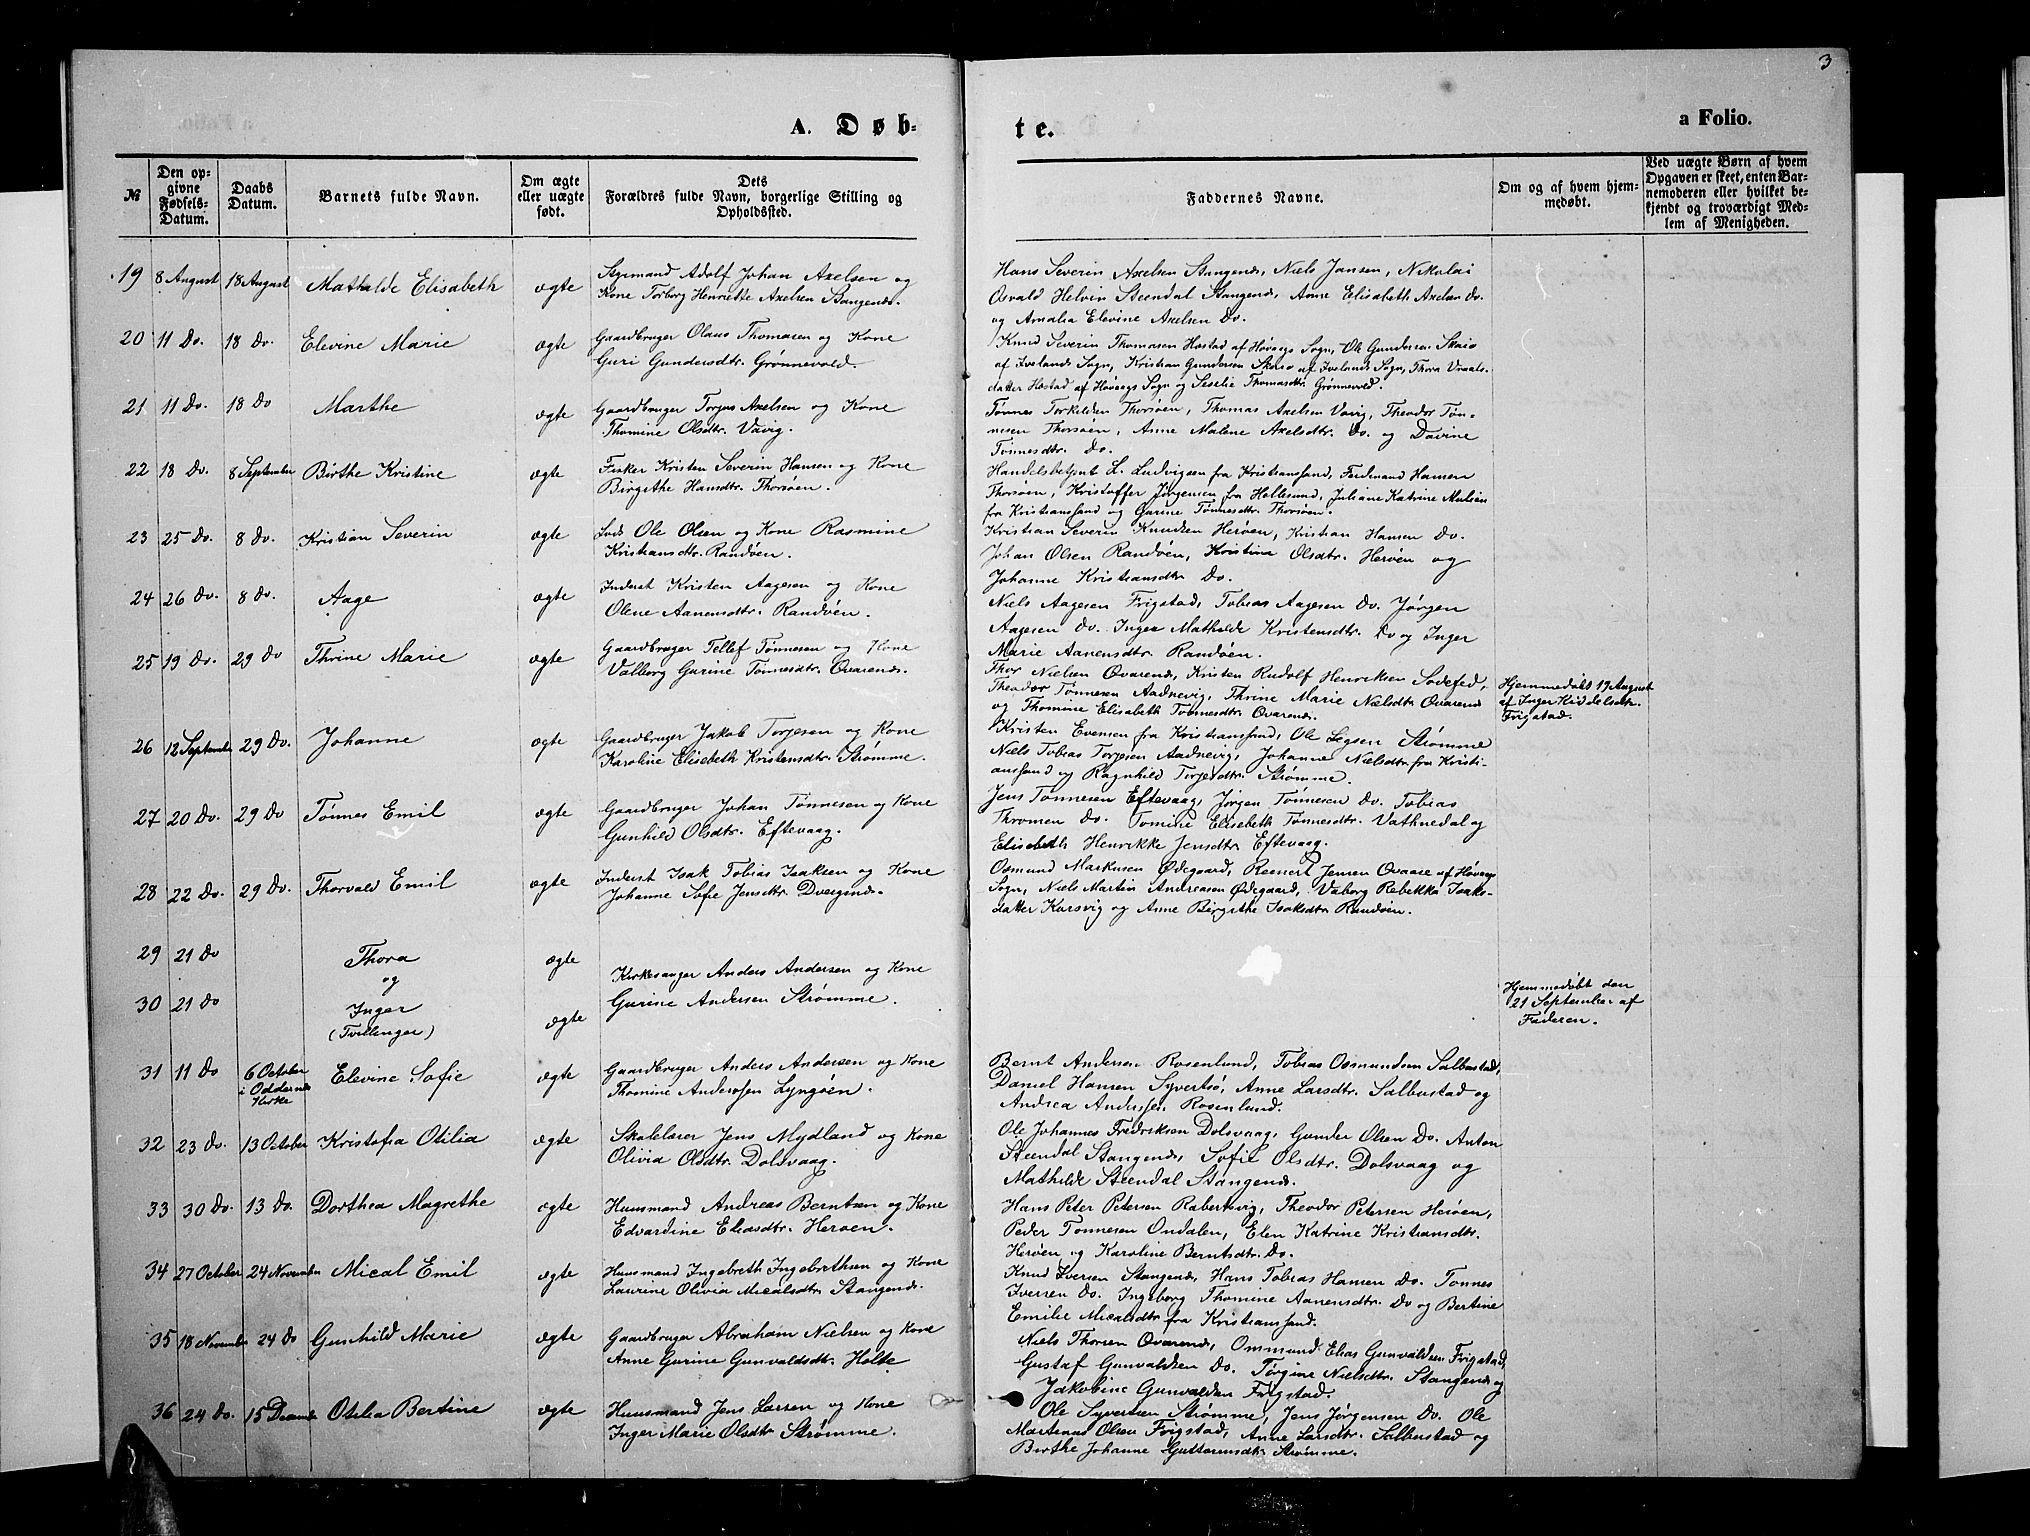 3
A. Døb-
te.
a Folio.
№
Den op-
givne
Fødsels-
Datum.
Daabs
Datum.
Barnets fulde Navn.
Om ægte
eller uægte
født.
Dets
Forældres fulde Navn, borgerlige Stilling og
Opholdssted.
Faddernes Navne.
Om og af hvem hjem-
medøbt.
Ved uægte Børn af hvem
Opgaven er skeet, enten Bar-
nemoderen eller hvilket be-
kjendt og troværdigt Med-
lem af Menigheden.
19 8 August 18 August Mathilde Elisabeth ægte
Styrmand Adolf Johan Axelsen og
Kone Torborg Henriette Axelsen Stangenes.
Hans Severin Axelsen Stangenes, Niels Jansen, Nikolai
Osvald Helvin Steendal Stangenes, Anne Elisabeth Axelsen Do.
og Amalia Elevine Axelsen Do.
20 11 Do. 18 Do. Elevine Marie ægte
Gaardbruger Olaus Thomasen og Kone
Guri Gundersdtr. Grønnevold.
Knud Severin Thomasen Hostad af Høvaags Sogn, Ole Gundersen Skaio
af Ivelands Sogn, Kristian Gundersen Skaiso af Ivelands Sogn, Thora Vraals-
datter Hostad af Høvaags Sogn og Seselie Thomasdtr. Grønnevold.
21 11 Do. 18 Do Marthe ægte
Gaardbruger Torjus Axelsen og Kone
Thomine Olsdtr. Vavig.
Tønnes Torkelsen Thorsøen, Thomas Axelsen Vavig, Theodor Tøn-
nesen Thorsøen, Anne Malene Axelsdtr. Do. og Davine
Tønnesdtr. Do.
22 18 Do. 8 September Birthe Kristine ægte
Fisker Kristen Severin Hansen og Kone
Birgithe Hansdtr. Thorsøen.
Handelsbetjent L. Ludvigsen fra Kristiansand, Ferdinand Hansen
Thorsøen, Kristoffer Jørgensen fra Hellesund, Juliane Katrine Nielsen
fra Kristiansand og Gurine Tønnesdtr. Thorsøen.
23 25 Do. 8 Do. Kristian Severin ægte
Lods Ole Olsen og Kone Rasmine
Kristiansdtr. Randøen.
Kristian Severin Knudsen Herøen, Kristian Hansen Do.
Johan Olsen Randøen, Kristine Olsdtr. Herøen og
Johanne Kristiansdtr Do.
24 26 Do. 8 Do. Aage ægte
Inderst Kristen Aagesen og Kone
Olene Aanensdtr. Randøen.
Niels Aagesen Frigstad, Tobias Aagesen Do. Jørgen
Aagesen Do. Inger Mathilde Kristensdtr. Do og Inger
Marie Aanensdtr. Randøen.
25 19 Do. 29 Do Thrine Marie ægte
Gaardbruger Tellef Tønnesen og Kone
Valborg Gurine Tønnesdtr. Qvarenes.
Thor Nielsen Qvarenes, Kristen Rudolf Henriksen Sodefed,
Theodor Tønnesen Aadnevig, Thrine Marie Nielsdtr. Qvarenes
og Thomine Elisabeth Tønnesdtr. Qvarenes.
Hjemmedøbt 19 August
af Inger Kiddelsdtr.
Frigstad.
26 12 September 29 Do. Johanne ægte
Gaardbruger Jakob Torjesen og Kone
Karoline Elisebeth Kristensdtr. Strømme.
Kristen Evensen fra Kristiansand, Ole Strømme
Niels Tobias Torjesen Aadnevig, Johanne Nielsdtr. fra Kristi-
ansand og Ragnhild Torjesdtr. Strømme.
27 20 Do. 29 Do Tønnes Emil ægte
Gaardbruger Johan Tønnesen og Kone
Gunhild Olsdtr. Eftevaag.
Jens Tønnesen Eftevaag, Jørgen Tønnesen Do. Tobias
Do. Tomine Elisebeth Tønnesdtr. Vathnedal og
Elisebeth Henrikke Jensdtr. Eftevaag.
28 22 Do. 29 Do. Thorvald Emil ægte
Inderst Isak Tobias Isaksen og Kone
Johanne Sofie Jensdtr. Dvergenes.
Osmund Markusen Ødegaard, Reenert Jensen Ovaare af Høvaags
Sogn, Niels Martin Andreasen Ødegaard, Vaborg Rebekka Isaks-
datter Korsvig og Anne Birgithe Isaksdtr Randøen.
29 21 Do Thora ægte
og
30 21 Do Inger ægte
(Tvillinger)
Kirkesanger Anders Andersen og Kone
Gurine Andersen Strømme.
Hjemmedøbt den
21 September af
Faderen.
31 11 Do 6 October
i Oddernes
Kirke Elevine Sofie ægte
Gaardbruger Anders Andersen og Kone
Thomine Andersen Lyngøen.
Bernt Andersen Rosenlund, Tobias Osmundsen Salbustad,
Daniel Hansen Syvertsø, Anne Larsdtr. Salbustad og
Andrea Andersen Rosenlund.
32 23 Do. 13 October Kristofa Otilia ægte
Skolelærer Jens Mydland og Kone
Olivia Olsdtr. Dolsvaag.
Ole Johannes Fredriksen Dolsvaag, Gunder Olsen Do. Anton
Steendal Stangenes, Sofie Olsdtr. Dolsvaag og
Mathilde Steendal Stangenes.
33 30 Do. 13 Do. Dorthea Magrethe ægte
Huusmand Andreas Berntsen og Kone
Edvardine Eliasdtr. Herøen.
Hans Peter Petersen Rabersvig, Theodor Petersen Herøen,
Peder Tønnesen Ondalen, Elen Katrine Kristiansdtr.
Herøen og Karoline Berntsdtr. Do.
34 27 October 24 November Mical Emil ægte
Huusmand Ingebreth Ingebrethsen og Kone
Laurine Olivia Micalsdtr. Stangenes.
Knud Iversen Stangenes, Hans Tobias Hansen Do. Tønnes
Iversen Do. Ingeborg Thomine Aanensdtr. Do og Bertine
Emilie Micalsdtr fra Kristiansand.
35 18 November 24 Do Gunhild Marie ægte
Gaardbruger Abraham Nielsen og Kone
Anne Gurine Gunvaldsdtr. Holte
Niels Thorsen Qvarenes, Ommund Elias Gunvaldsen Frigstad,
Gustaf Gunvaldsen Do. Tørgine Nielsdtr. Stangenes og
Jakobine Gunvalden Frigstad.
36 24 Do. 15 December Otilia Bertine ægte
Huusmand Jens Larsen og Kone
Inger Marie Olsdtr. Strømme.
Ole Syvertsen Strømme, Jens Jørgensen Do. Ole
Martinus Olsen Frigstad, Anne Larsdtr. Salbustad og
Birthe Johanne Guttormsdtr. Strømme.